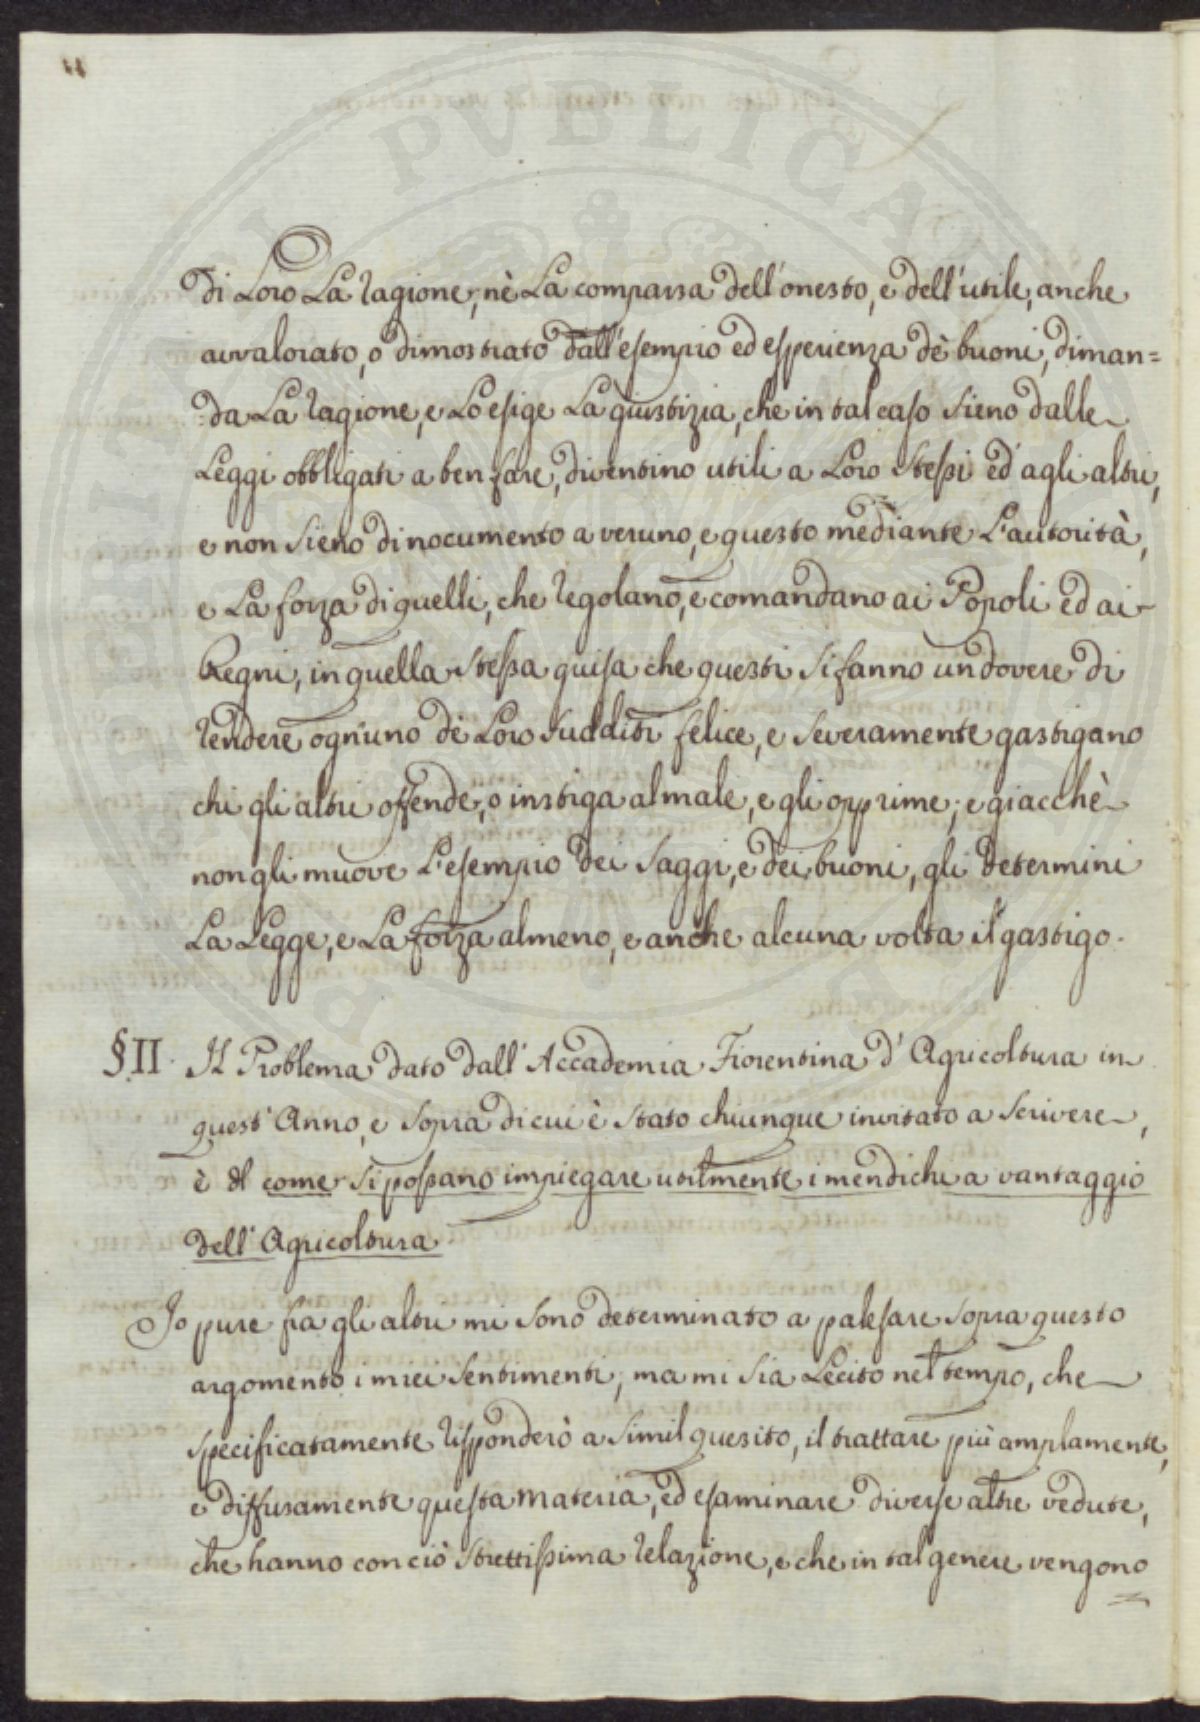 di Loro La ragione, nè La comparsa dell'onesto, e dell'utile, anche
avvalorato, o dimostrato dall'esempio ed esperienza de' buoni, diman=
=da La ragione, e Lo esige La giustizia, che in tal caso sieno dalle
Leggi obbligati a ben fare, diventino utili a Loro stessi ed agli altri,
e non sieno di nocumento a veruno, e questo mediante L'autorità,
e La forza di quelli, che regolano, e comandano ai Popoli ed ai
Regni, in quella stessa guisa che questi si fanno un dovere di
rendere ogn'uno de Loro sudditi felice, e severamente gastigano
chi gli altri offende, o instiga al male, e gli opprime; e giacchè
non gli muove L'esempio dei saggi, e dei buoni, gli determini
La Legge, e La forza almeno, e anche alcuna volta il gastigo.
§. II. Il Problema dato dall'Accademia Fiorentina d'Agricoltura in
quest'Anno, e sopra di cui è stato chiunque invitato a scrivere,
è il come si possano impiegare utilmente i mendichi a vantaggio
dell'Agricoltura
Io pure fra gli altri mi sono determinato a palesare sopra questo
argomento i miei sentimenti; ma mi sia Lecito nel tempo, che
specificatamente risponderò a simil quesito, il trattare più amplamente,
e diffusamente questa materia, ed esaminare diverse altre vedute,
che hanno con ciò strettissima relazione, e che in tal genere vengono
PVBLICA